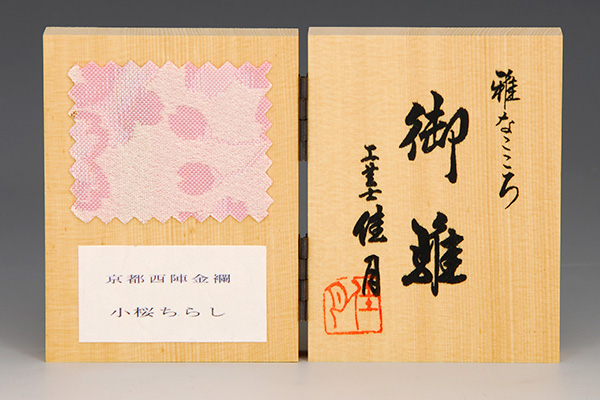 雅なこころ
御雛
工芸士 佳月
京都西陣金襴
小桜ちらし